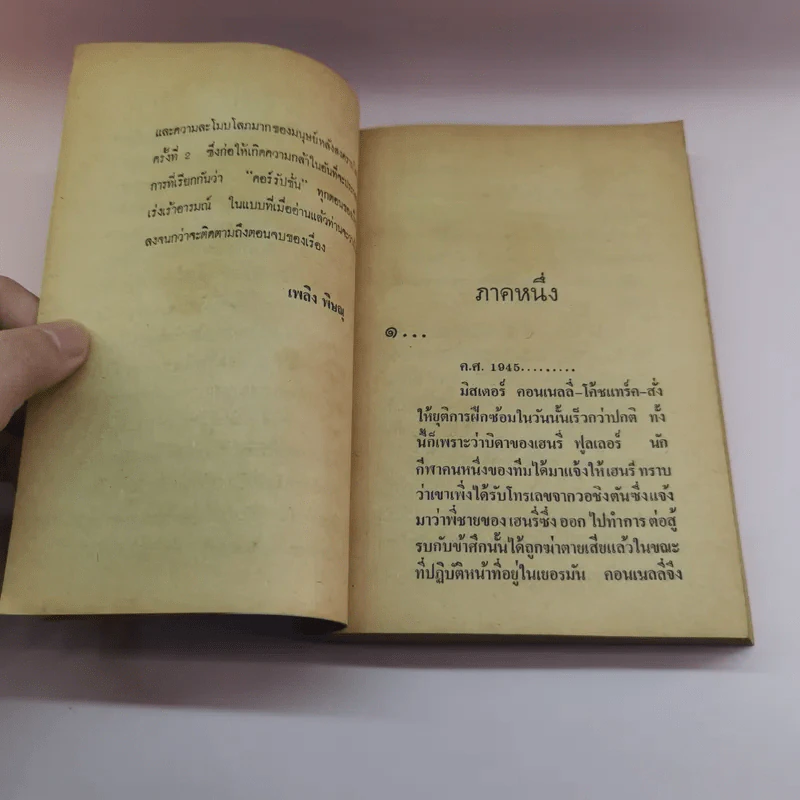 และความละโมบโลภมากของมนุษย์หลังสงคราม
ครั้งที่ 2 ซึ่งก่อให้เกิดความกล้าในอันที่จะ
การที่เรียกกันว่า "คอร์รัปชั่น" ทุกตอนของ
เร่งเร้าอารมณ์ ในแบบที่เมื่ออ่านแล้วท่านจะ
ลงจนกว่าจะติดตามถึงตอนจบของเรื่อง
เพลิง พิษณุ
ภาคหนึ่ง
๑...
ค.ศ. 1945.........
มิสเตอร์ คอนเนลลี่-โค้ชแทร์ค-สั่ง
ให้ยุติการฝึกซ้อมในวันนั้นเร็วกว่าปกติ ทั้ง
นี้ก็เพราะว่าบิดาของเฮนรี่ ฟูลเลอร์ นัก
กีฬาคนหนึ่งของทีมได้มาแจ้งให้เฮนรี่ ทราบ
ว่าเขาเพิ่งได้รับโทรเลขจากวอชิงตันซึ่งแจ้ง
มาว่าพี่ชายของ เฮนรี่ซึ่ง ออก ไปทำการ ต่อสู้
รบกับข้าศึกนั้นได้ถูกฆ่าตายเสียแล้วในขณะ
ที่ปฏิบัติหน้าที่อยู่ในเยอรมัน คอนเนลลี่จึง